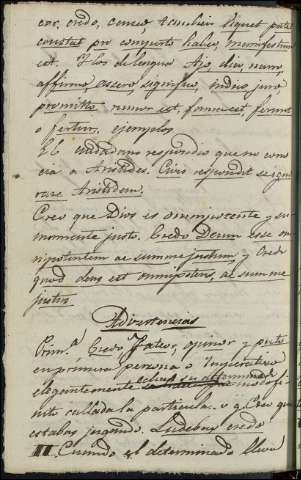 cor, credo, censeo, tambien liquet patet
constat pro comperto habeo, manifestum
est. Y los de lengua Ajo, dico, narro,
affirmo, assero significo, indico, juro
promitto rumor est, fama est, ferunt
o fertur. ejemplos
El ciudadano respondio que no cono
cia a Aristides. Civis respondit se igno
rare Aristidem.
Creo que Dios es omnipotente y su
mamente justo. Credo Deum esse om
nipotentem ac summe justum, y Credo
quod deus est omnipotens, ac summe
justus
Advertencias
Prim.ª Credo, Fateor, opinor y puto
en primera persona o Imperativo
elegantemente
nito callada la particula. v. g. Creo que
estabas jugando. Ludebas credo
II Cuando el determinado lleva